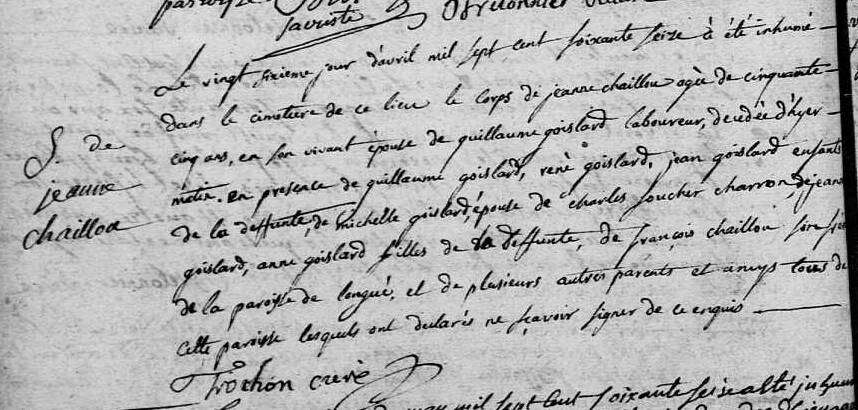 sacriste
Le vingt sixieme jour d'avril mil sept cent soixante seize à été inhumé
dans le cimetière de ce lieu le corps de jeanne chaillou agée de cinquante
cinq ans, en son vivant épouse de guillaume goislard laboureur, decedée d'hyer
matin. en presence de guillaume goislard, renè goislard, jean goislard enfants
de la deffunte, de michelle goislard épouse de charles foucher charron, de jeanne
goislard, anne goislard filles de la deffunte, de françois chaillou son frère
de la paroisse de longué, et de plusieurs autres parents et amys tous de
cette paroisse lesquels ont declarés ne sçavoir signer de ce enquis
S. de
jeanne
chaillou
Trochon curé
may mil sept cent soixante seise a été inhumé